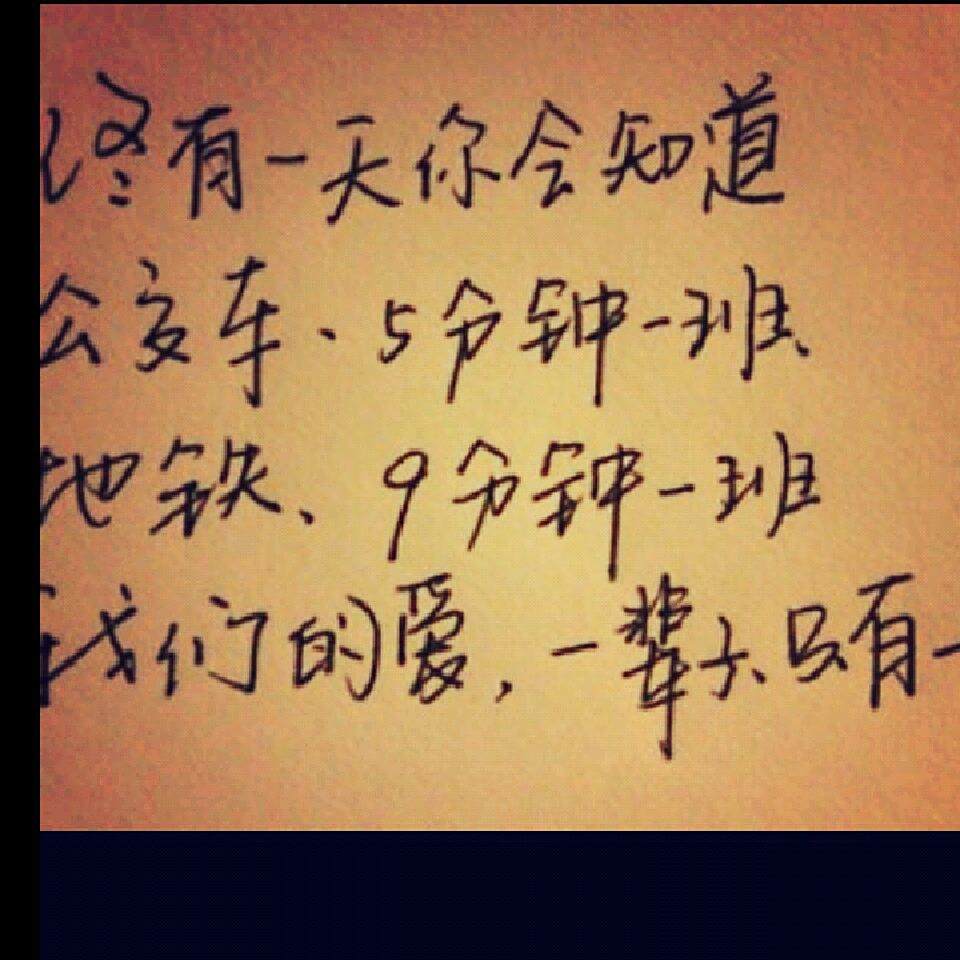 终有一天你会知道
公交车、5分钟一班、
地铁、9分钟一班
我们的爱,一辈子、只有一